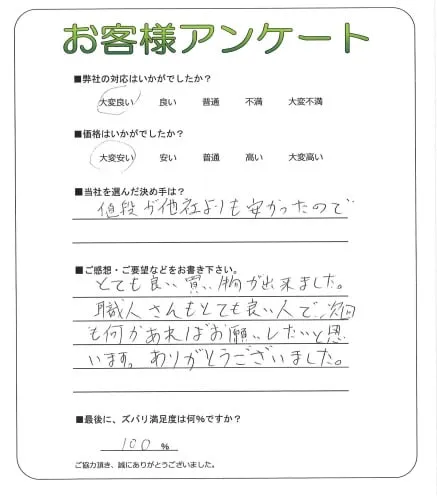 お客様アンケート
■弊社の対応はいかがでしたか？
大変良い 良い 普通 不満 大変不満
■価格はいかがでしたか？
大変安い 安い 普通 高い 大変高い
■当社を選んだ決め手は？
値段が他社よりも安かったので
■ご感想・ご要望などをお書き下さい。
とても良い買い物が出来ました。
職人さんもとても良い人で、次回
も何かあればお願いしたいと思
います。ありがとうございました。
■最後に、ズバリ満足度は何%ですか？
100 %
ご協力頂き、誠にありがとうございました。